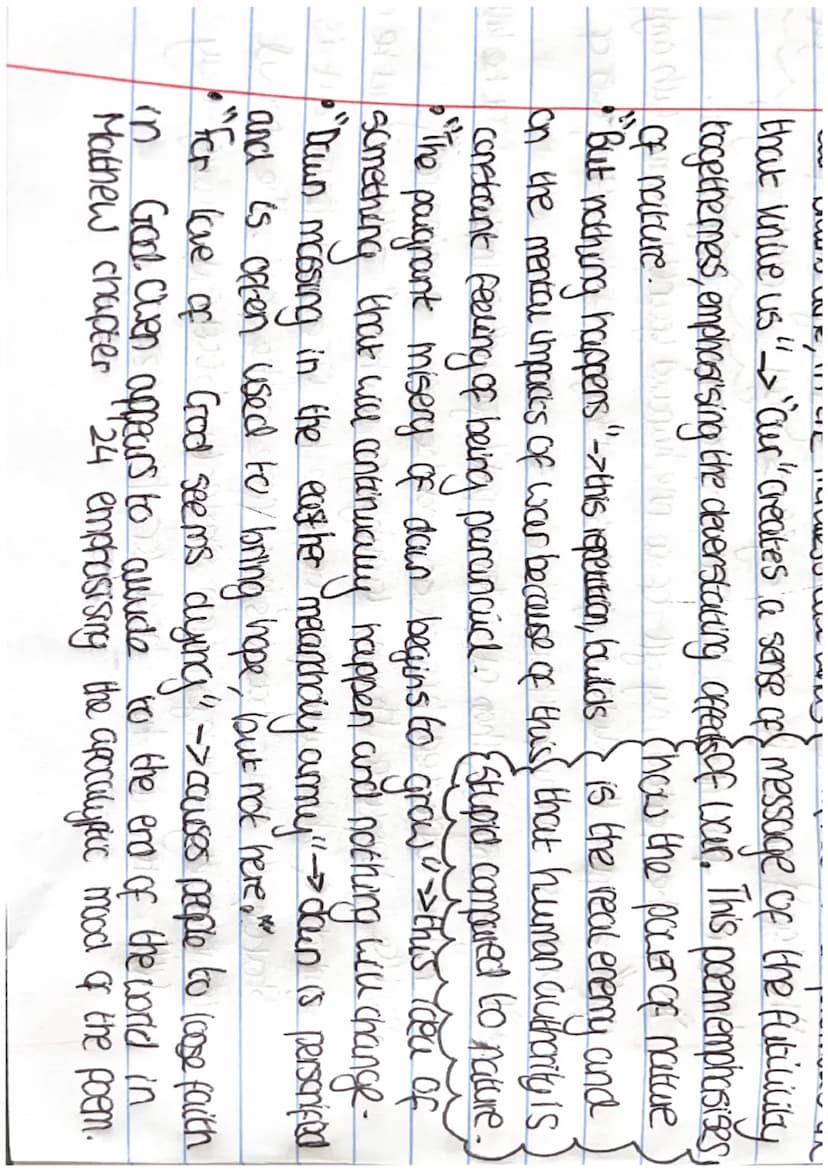 that knive us" -> "our" creates a sense of
togetherness, emphasising the deverstating affects
of nature.
• "But nothing happens" -> this repetition, builds
on the mental impacts of war because of this
constant feeling of being paranoid.
message of the futilility
of war. This poem emphasises
how the power of nature
is the real enemy and
that human authority is
stupid compared to nature.
• "The poignant misery of dawn begins to grow" -> this idea of
something that will continually happen and nothing will change.
• "Dawn massing in the easther melanchaly army" -> dawn is personified
and is often used to bring hope, but not here.
• "For love of God seems dying" -> causes people to loose faith
in God. Owen appears to allude to the end of the world in
Matthew chapter 24 emphasising the apocalyptic mood of the poem.